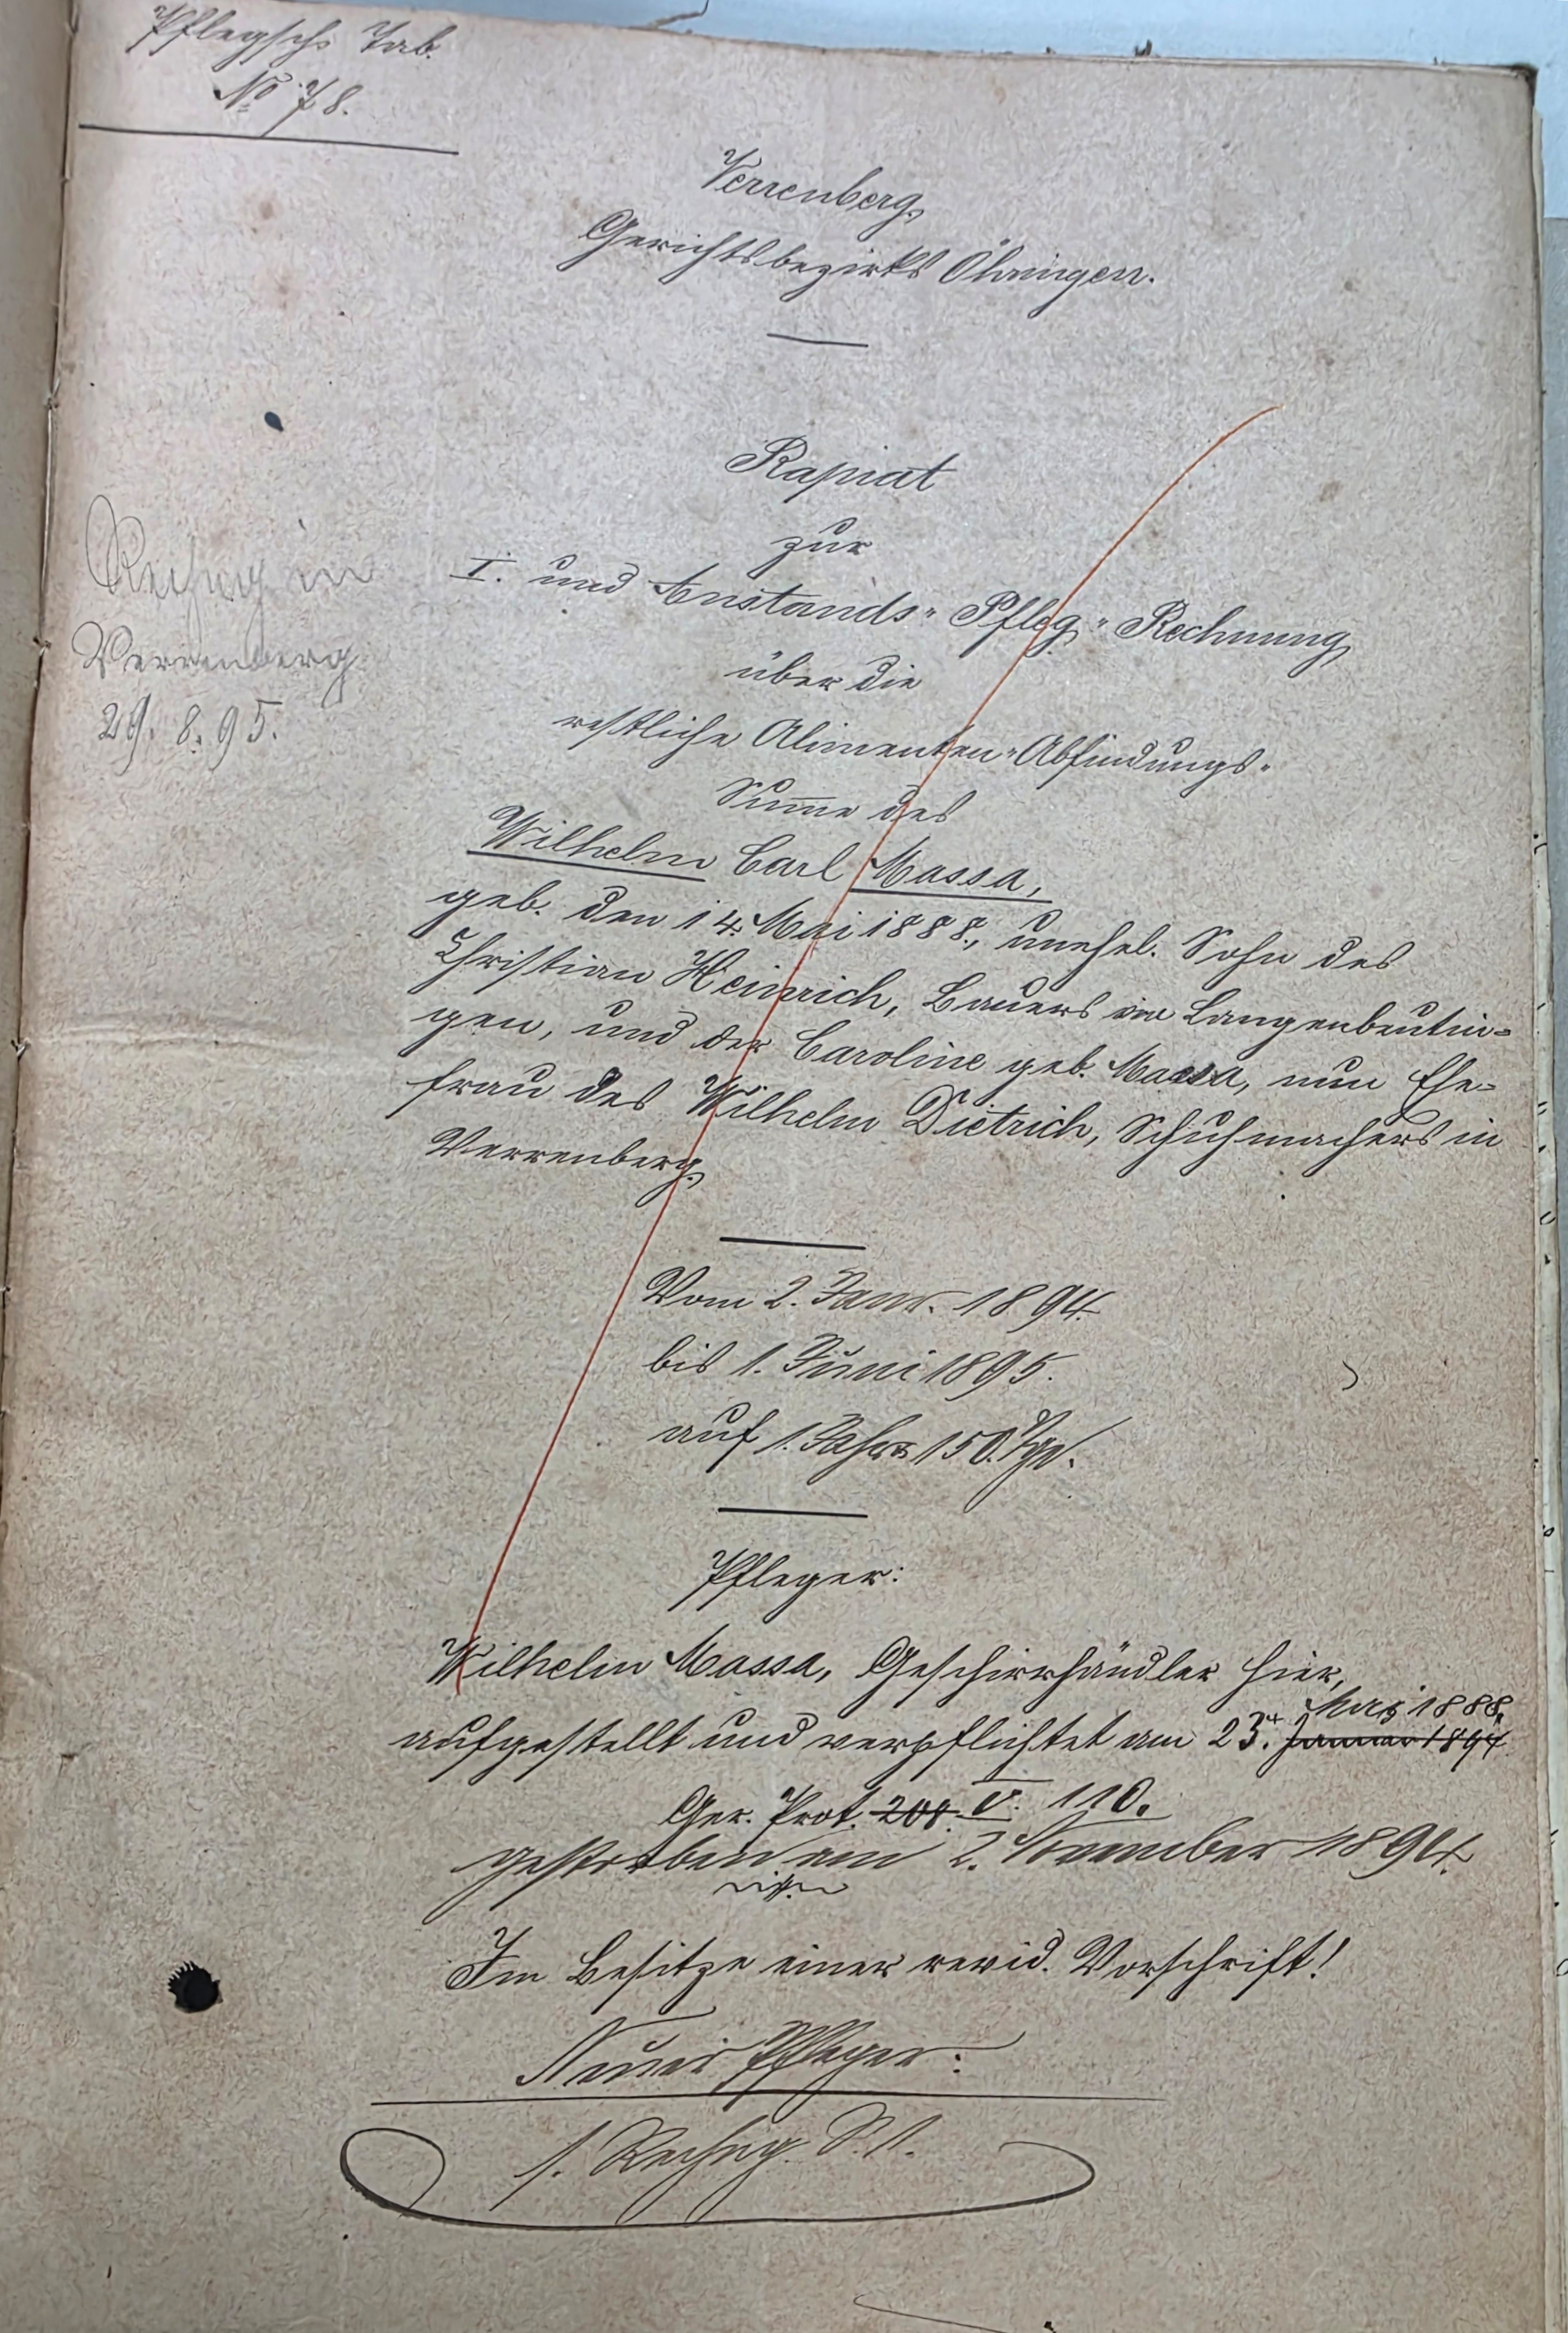 Pflegsch. Tab.
No 78.
Verrenberg,
Gerichtsbezirks Öhringen.
Rapiat
zur
I. und Anstands- Pfleg- Rechnung
über die
restliche Alimenten-Abfindungs-
Summe des
Wilhelm Carl Massa,
geb. den 14. Mai 1888., unehel. Sohn des
Christian Heinrich, Bauers in Langenbeutin=
gen, und der Caroline geb. Massa, nun Ehe=
frau des Wilhelm Dietrich, Schuhmachers in
Verrenberg.
Rechng in
Verrenberg.
29. 8. 95.
Vom 2. Janr. 1894.
bis 1. Juni 1895.
auf 1. Jahr 150. Tge.
Pfleger:
Wilhelm Massa, Geschirrhändler hier,
Mai 1888,
aufgestellt und verpflichtet am 23. Januar 1894
Ger. Prot. 208. V. 110.
gestorben am 2. November 1894.
Im Besitze einer revid. Vorschrift!
Neuer Pfleger:
s. Rechng. S. 1.